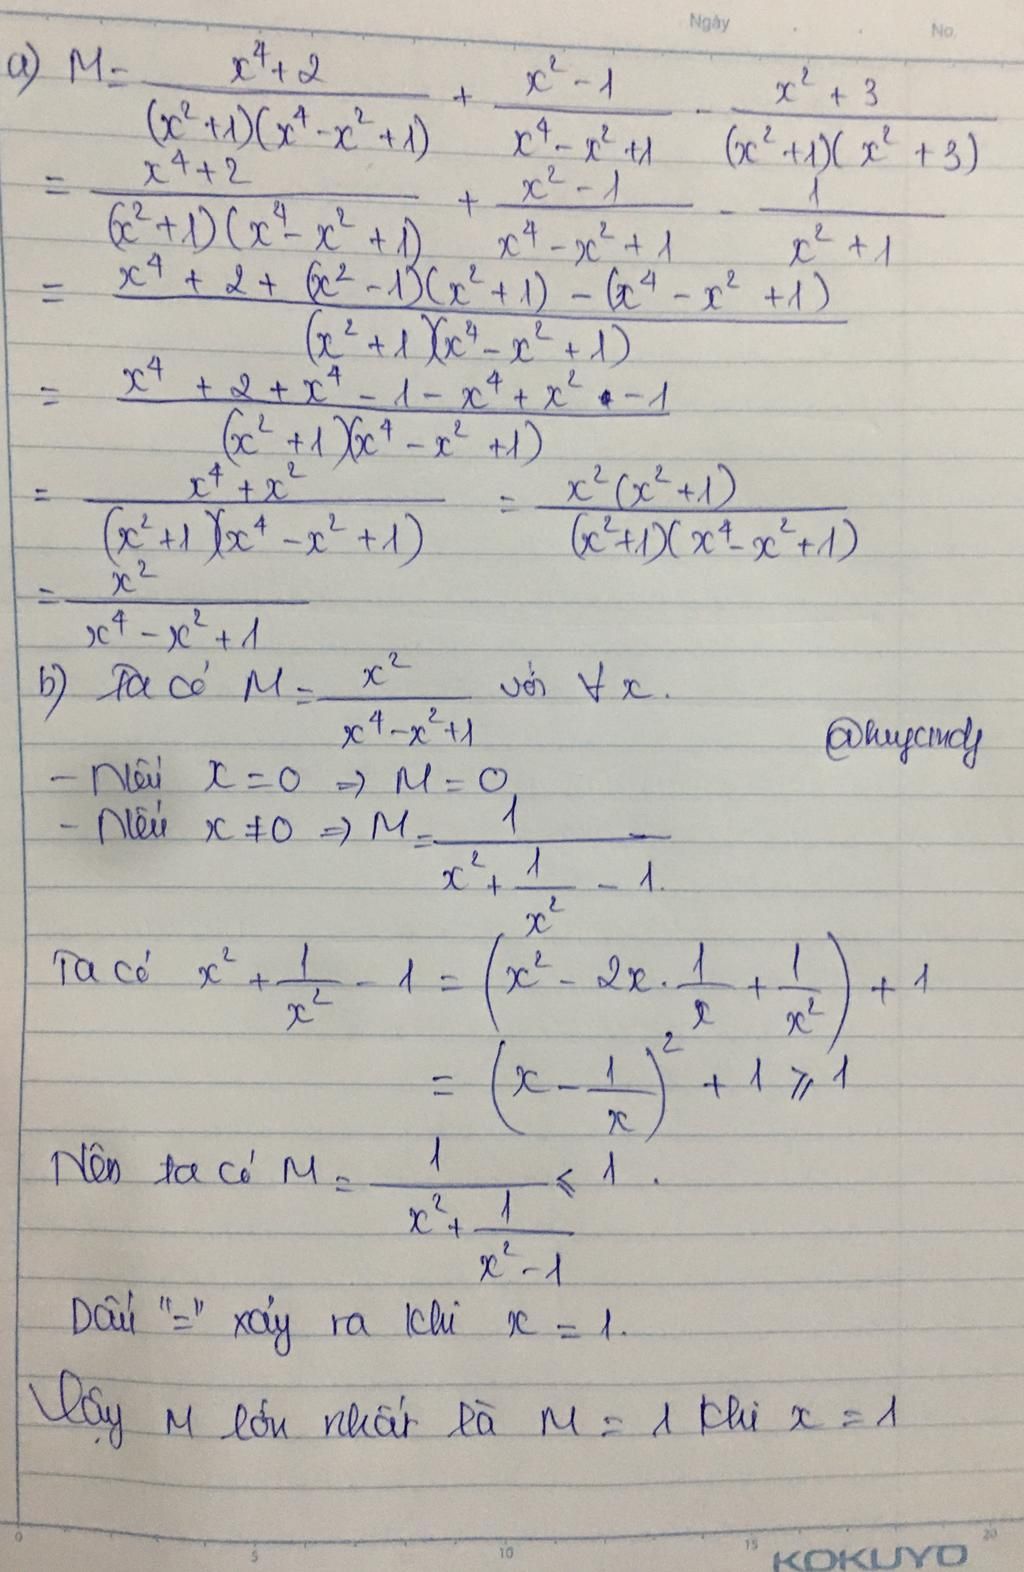 Ngày No.
a) M = (x⁴ + 2)/((x² + 1)(x⁴ - x² + 1)) + (x² - 1)/(x⁴ - x² + 1) - (x² + 3)/((x² + 1)(x² + 3))
= (x⁴ + 2)/((x² + 1)(x⁴ - x² + 1)) + (x² - 1)/(x⁴ - x² + 1) - 1/(x² + 1)
= (x⁴ + 2 + (x² - 1)(x² + 1) - (x⁴ - x² + 1))/((x² + 1)(x⁴ - x² + 1))
= (x⁴ + 2 + x⁴ - 1 - x⁴ + x² - 1)/((x² + 1)(x⁴ - x² + 1))
= (x⁴ + x²)/((x² + 1)(x⁴ - x² + 1)) = (x²(x² + 1))/((x² + 1)(x⁴ - x² + 1))
= x²/(x⁴ - x² + 1)
b) Ta có M = x²/(x⁴ - x² + 1) với ∀ x.
@huycmdj
- Nếu x = 0 => M = 0
- Nếu x ≠ 0 => M = 1/(x² + 1/x² - 1).
Ta có x² + 1/x² - 1 = (x² - 2x . 1/x + 1/x²) + 1
= (x - 1/x)² + 1 ⩾ 1
Nên ta có M = 1/(x² + 1/(x² - 1)) ⩽ 1 .
Dấu "=" xảy ra khi x = 1.
Vậy M lớn nhất là M = 1 khi x = 1
0 5 10 15 20
KOKUYO